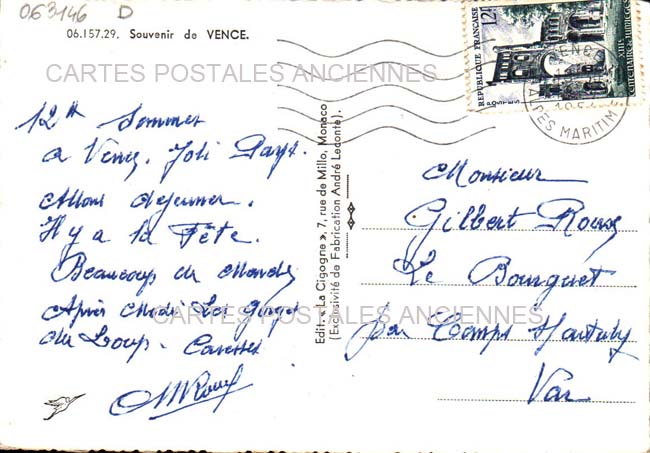 063146 D
06.157.29. Souvenir de VENCE.
CARTES POSTALES ANCIENNES
12h Sommes
a Vence. Joli Pays.
Allons dejeuner.
Il y a la Fête.
Beaucoup de Monde,
Après Midi Les Gorges
du Loup. Caresses
Edit. « La Cigogne », 7, rue de Millo, Monaco
(Exclusivité de Fabrication André Leconte).
REPUBLIQUE FRANÇAISE
12F
POSTES
VENCE
ALPES MARITIM
Monsieur
Gilbert Roux
Le Bourguet
par Comps
Var
CARTES POSTALES ANCIENNES